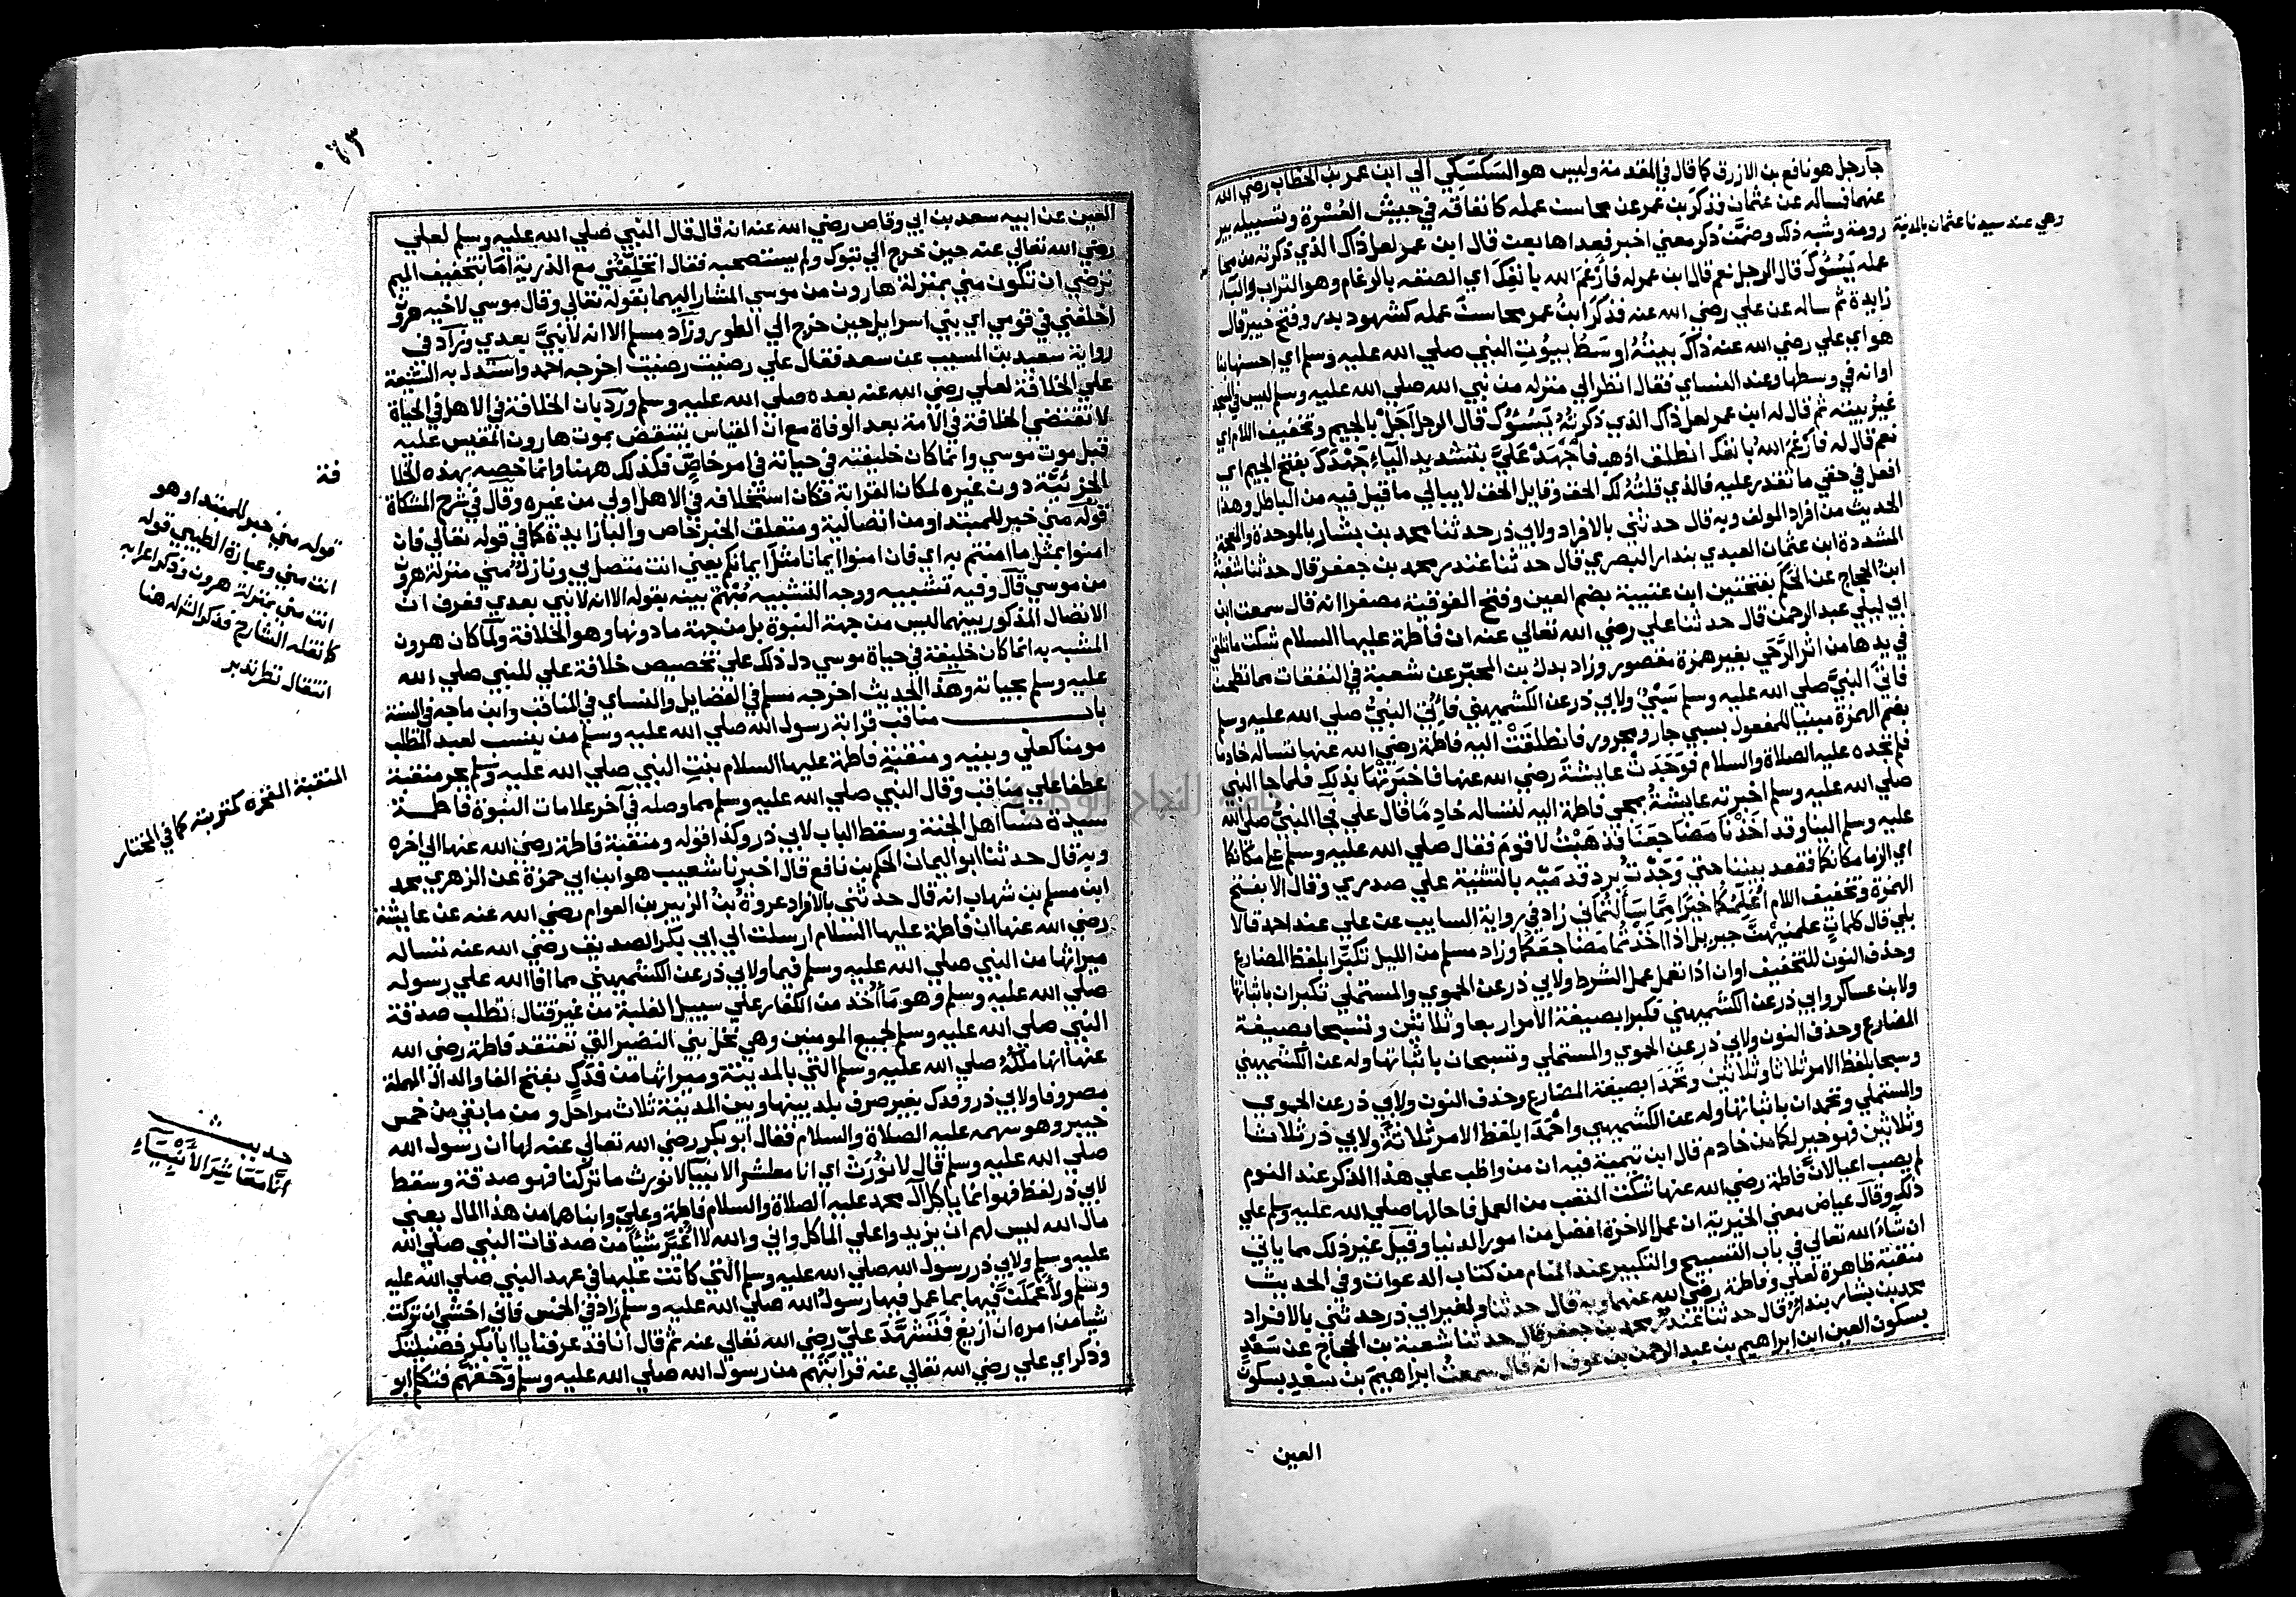 جا رجل هو نافع بن الازرق كما قال في المقدمة وليس هو السكسكي الي ابن عمر بن الخطاب رضي الله
عنهما فساله عن عثمان فذكر بن عمر عن محاسن عمله كانفاقه في جيش العُسْرة وتسبيله بير
رومة وشبه ذلك وضمّن ذكر معني اخبر فعداها بعن قال ابن عمر لعل ذاك الذي ذكرته من محا
وهي عند سيدنا عثمان بالمدينة
عمله يَسُوُك قال الرجل نعم قال ابن عمر له فَأَرْغَمَ الله بانفِكَ اي الصقه بالرغام وهو التراب والباء
زايدة ثم ساله عن علي رضي الله عنه فذكر ابنُ عمر محاسنَ عمله كشهود بدر وفتح خيبر قال
هو اي علي رضي الله عنه ذَاكَ بيتُهُ اوسَطُ بيُوتِ النبي صلي الله عليه وسلم اي احسنها بنا
او انه في وسطها وعند النساي فقال انظر الي منزله من نبي الله صلي الله عليه وسلم ليس في المسجد
غيرُ بيته ثم قال له ابن عمر لعل ذاك الذي ذكرتُهُ يَسُؤُك قال الرجل اَجَلْ بالجيم وتخفيف اللام اي
نعم قال له فاَرْغَمَ اللهُ بانفك انطلق اذهب فاَجْهَدْ عَلَيَّ بتشديد الياءِ جَهْدَكَ بفتح الجيم اي
افعل في حقي ما تقدر عليه فالذي قلتُهُ لك الحق وقايل الحق لا يبالي ما قيل فيه من الباطل وهذا
الحديث من افراد المولف وبه قال حدثني بالافراد ولابي ذر حدثنا محمد بن بشار بالموحدة والمعجمة
المشددة ابن عثمان العبدي بندار البصري قال حدثنا غندر محمد بن جعفر قال حدثنا شعبةُ
ابنُ الحجاج عن الحَكَم بفتحتين ابن عتيبة بضم العين وفتح الفوقية مصغرا انه قال سمعت ابن
ابي ليلي عبد الرحمن قال حدثنا علي رضي الله تعالي عنه ان فاطمة عليها السلام شكت ما تلقي
في يدها من اثر الرَّحَي بغير همزة مقصور وزاد بدل بن المحبّر عن شعبة في النفقات مما تطحن
فاتي النبيَّ صلي الله عليه وسلم سَبْيٌ ولابي ذر عن الكشميهني فاُتي النبيُّ صلي الله عليه وسلم
بضم الهمزة مبنيا للمفعول بسبي جار ومجرور فانطلقَتْ اليه فاطمة رضي الله عنها تساله خادما
فلم تجده عليه الصلاة والسلام فوَجَدَتْ عايشةَ رضي الله عنها فاخبَرَتْهَا بذلك فلما جا النبي
صلي الله عليه وسلم اخبرته عايشةُ بمجي فاطمة اليه لتساله خادِمًا قال علي فجا النبيُّ صلي الله
عليه وسلم الينا وقد اَخَذْنَا مَضَاجعَنَا فذهَبْتُ لاقومَ فقال صلي الله عليه وسلم علي مكانكما
اي الزما مكانكما فقعد بيننا حتي وَجَدْتُ بَرد قدمَيْه بالتثنية علي صدري وقال الا بفتح
الهمزة وتخفيف اللام اُعَلِّمُكما خيرًا مِمَّا سَأَلْتُمَاني زاد في رواية السايب عن علي عند احمد قالا
بلي قال كلماتٍ علمنيهنّ جبريل اذا اخَذْتُما مَضَاجعَكُمَا وزاد مسلم من الليل تكَبِّرا بلفظ المضارع
وحذف النون للتخفيف او ان اذا تعمل عمل الشرط ولابي ذر عن الحموي والمستملي تكبران باثباتها
ولابن عساكر وابي ذر عن الكشميهني فكبرا بصيغة الامر اربعا وثلاثين وتسبحا بصيغة
المضارع وحذف النون ولابي ذر عن الحموي والمستملي وتسبحان باثباتها وله عن الكشميهني
وسبحا بلفظ الامر ثلاثا وثلاثين وتحَمَدَا بصيغة المضارع وحذف النون ولابي ذر عن الحموي
والستملي وتحمدان باثباتها وله عن الكشميهني واحْمَدَا بلفظ الامر ثلاثةً ولابي ذر ثلاثا
وثلاثين فهو خير لكما من خادم قال ابن تيمية فيه ان من واظب علي هذا الذكر عند النوم
لم يصب اعيا لانّ فاطمة رضي الله عنها شكَت التعب من العمل فاحالها صلي الله عليه وسلم علي
ذلك وقال عياض معني الخيرية ان عمل الاخرة افضل من امور الدنيا وقيل غير ذلك مما ياتي
ان شآءَ الله تعالي في باب التسبيح والتكبير عند المنام من كتاب الدعوات وفي الحديث
منقبة ظاهرة لعلي وفاطمة رضي الله عنهما وبه قال حدثنا ولغير ابي ذر حدثني بالافراد
محمد بن بشار بندارٌ قال حدثنا غندر محمد بن جعفر قال حدثنا شعبة بن الحجاج عن سَعْدٍ
بسكون العين ابن ابراهيم بن عبد الرحمن بن عوف انه قال سمعتُ ابراهيمَ بن سَعْدٍ بسكون
العين
٥٦٣
العين عن ابيه سعد بن ابي وقاص رضي الله عنه انه قال قال النبي صلي الله عليه وسلم لعلي
رضي الله تعالي عنه حين خرج الي تبوك ولم يستصحبه فقال اتخلِّفُني مع الذرية اَمَا بتخفيف الميم
تَرْضَي ان تكون مني بمنزلة هارون من موسي المشار اليهما بقوله تعالي وقال موسي لاخيه هرون
اخلفني في قومي اي بني اسرايل حين خرج الي الطور وزاد مسلم الا انه لا نبيَّ بعدي وزاد في
رواية سعيد بن المسيب عن سعد فقال علي رضيت رضيت اخرجه احمد واستدل به الشيعة
علي الخلافة لعلي رضي الله عنه بعده صلي الله عليه وسلم وردّ بان الخلافة في الاهل في الحياة
لا تقتضي الخلافة في الامة بعد الوفاة مع ان القياس ينتقض بموت هارون المقيس عليه
قبل موت موسي وانما كان خليفته في حياته في امر خاصّ فكذلك ههنا وانما خصه بهذه الخلا
فة
الجزئيّة دون غيره لمكان القرابة فكان استخلافه في الاهل اولي من غيره وقال في شرح المشكاة
قوله مني خبر للمبتدا ومن اتصالية ومتعلق الخبر خاص والبا زايدة كما في قوله تعالي فان
امنوا بمثل ما امنتم به اي فان امنوا ايمانا مثل ايمانكم يعني انت متصل بي ونازلٌ مني منزلة هرون
من موسي قال وفيه تشبيه ووجه التشبيه مُبْهَم بينه بقوله الا انه لا نبي بعدي فعرف ان
الاتصال المذكور بينهما ليس من جهة النبوة بل من جهة ما دونها وهو الخلافة ولما كان هرون
المشبه به انما كان خليفة في حياة موسي دل ذلك علي تخصيص خلافة علي للنبي صلي الله
عليه وسلم بحياته وهذا الحديث اخرجه مسلم في الفضايل والنساي في المناقب وابن ماجه في السنة
باب مناقب قرابة رسول الله صلي الله عليه وسلم من ينسب لعبد المطلب
مومنا كعلي وبنيه ومنقبَةِ فاطمة عليها السلام بنتِ النبي صلي الله عليه وسلم بجر منقبة
عطفا علي مناقب وقال النبي صلي الله عليه وسلم مما وصله في آخر علامات النبوة فاطمة
سيدة نسآ اهل الجنة وسقط الباب لابي ذر وكذا قوله ومنقبة فاطمة رضي الله عنها الي اخره
وبه قال حدثنا ابو اليمان الحكم بن نافع قال اخبرنا شعيب هو ابن ابي حمزة عن الزهري محمد
ابن مسلم بن شهاب انه قال حدثني بالافراد عروة بنُ الزبير بن العوام رضي الله عنه عن عايشة
رضي الله عنها ان فاطمة عليها السلام ارسلت الي ابي بكر الصديق رضي الله عنه تساله
ميراثها من النبي صلي الله عليه وسلم فيما ولابي ذر عن الكشميهني مما افا الله علي رسوله
صلي الله عليه وسلم وهو ما اُخذ من الكفار علي سبيل الغلبة من غير قتال تطلب صدقة
النبي صلي الله عليه وسلم لجميع المومنين وهي نخل بني النضير التي تعتقد فاطمة رضي الله
عنها انها ملكُهُ صلي الله عليه وسلم التي بالمدينة وميراثها من فَدَكٍ بفتح الفا والدال المهملة
مصروفا ولابي ذر وفدك بغير صرف بلد بينها وبين المدينة ثلاث مراحل ومن ما بقي من خمس
خيبر وهو سهمه عليه الصلاة والسلام فقال ابو بكر رضي الله تعالي عنه لها ان رسول الله
صلي الله عليه وسلم قال لا نُوْرَثُ اي انا معشر الانبيآ لا نورث ما تركنا فهو صدقة وسقط
لابي ذر لفظ فهو انما ياكل آل محمد عليه الصلاة والسلام فاطمة وعليّ وابناهما من هذا المال يعني
مال الله ليس لهم ان يزيدوا علي الماكل واني والله لا اُغَيِّرُ شيًا من صدقات النبي صلي الله
عليه وسلم ولابي ذر رسول الله صلي الله عليه وسلم التي كانت عليها في عهد النبي صلي الله عليه
وسلم ولاَعْمَلَنَّ فيها بما عمل فيها رسولُ الله صلي الله عليه وسلم زاد في الخمس فاني اخشي ان تركت
شيا من امره ان ازيغ فتَشَهَّدَ عليّ رضي الله تعالي عنه ثم قال انا قد عرفنا يا ابا بكر فضيلتك
وذكر اي علي رضي الله تعالي عنه قرابتَهُم من رسول الله صلي الله عليه وسلم وَحَقَهُم فتكلم ابو
قوله مني خبر للمبتدا وهو
انت مني وعبارة الطيبي قوله
انت مني بمنزلة هرون وذكر اعرابه
كما نقله الشارح فذكر الشارح هنا
انتقال نظر تدبر
المنقبة المفخرة كمتربة كما في المختار
حديث
انَّا مَعَاشِرَ الاَنْبِيَاءِ